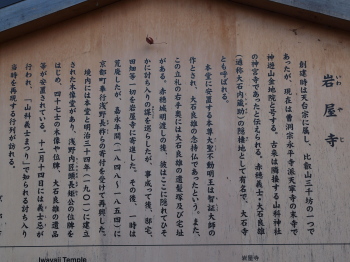 岩屋寺
いわやでら
創建時は天台宗に属し、比叡山三千坊の一つで
あったが、現在は曹洞宗永平寺派天寧寺の末寺で
神遊山金地院と号する。古来は隣接する山科神社
の神宮寺であったと伝えられる。赤穂義士・大石良雄
(通称大石内蔵助)の隠棲地として有名で、大石寺
とも呼ばれる。
本堂に安置する本尊大聖不動明王は智証大師の
作とされ、大石良雄の念持仏であったという。また、
この立札の右手奥には大石良雄の遺髪塚及び宅址
がある。赤穂城明渡しの後、彼はここに隠れてひそ
かに討ち入りの謀を巡らしたが、事成って後、邸宅、
田畑等一切を岩屋寺に寄進した。その後、一時は
荒廃したが、嘉永年間(一八四八〜一八五四)に
京都町奉行浅野長祚らの寄付を受けて再興した。
境内には本堂と明治三十四年(一九〇一)に建立
された木像堂があり、浅野内匠頭長矩公の位牌を
はじめ、四十七士の木像や位牌、大石良雄の遺品
等が安置されている。十二月十四日には義士忌が
行われ、「山科義士まつり」で知られる討ち入り
当時を再現する行列が訪れる。
Iwayaji Temple
岩屋寺